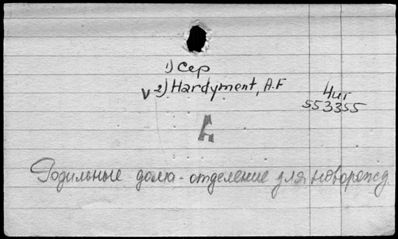 1) Сер
v 2) Hardyment, A.F
4иг
553355
А
Родильные дома - отделение для новорожд.